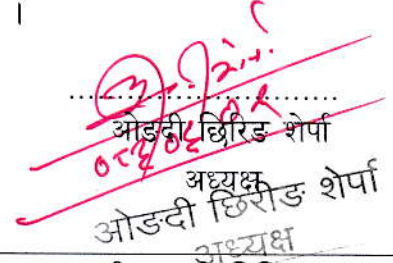 ।
....................................
ओङदी छिरिङ शेर्पा
अध्यक्ष
ओङदी छिरीङ शेर्पा
अध्यक्ष